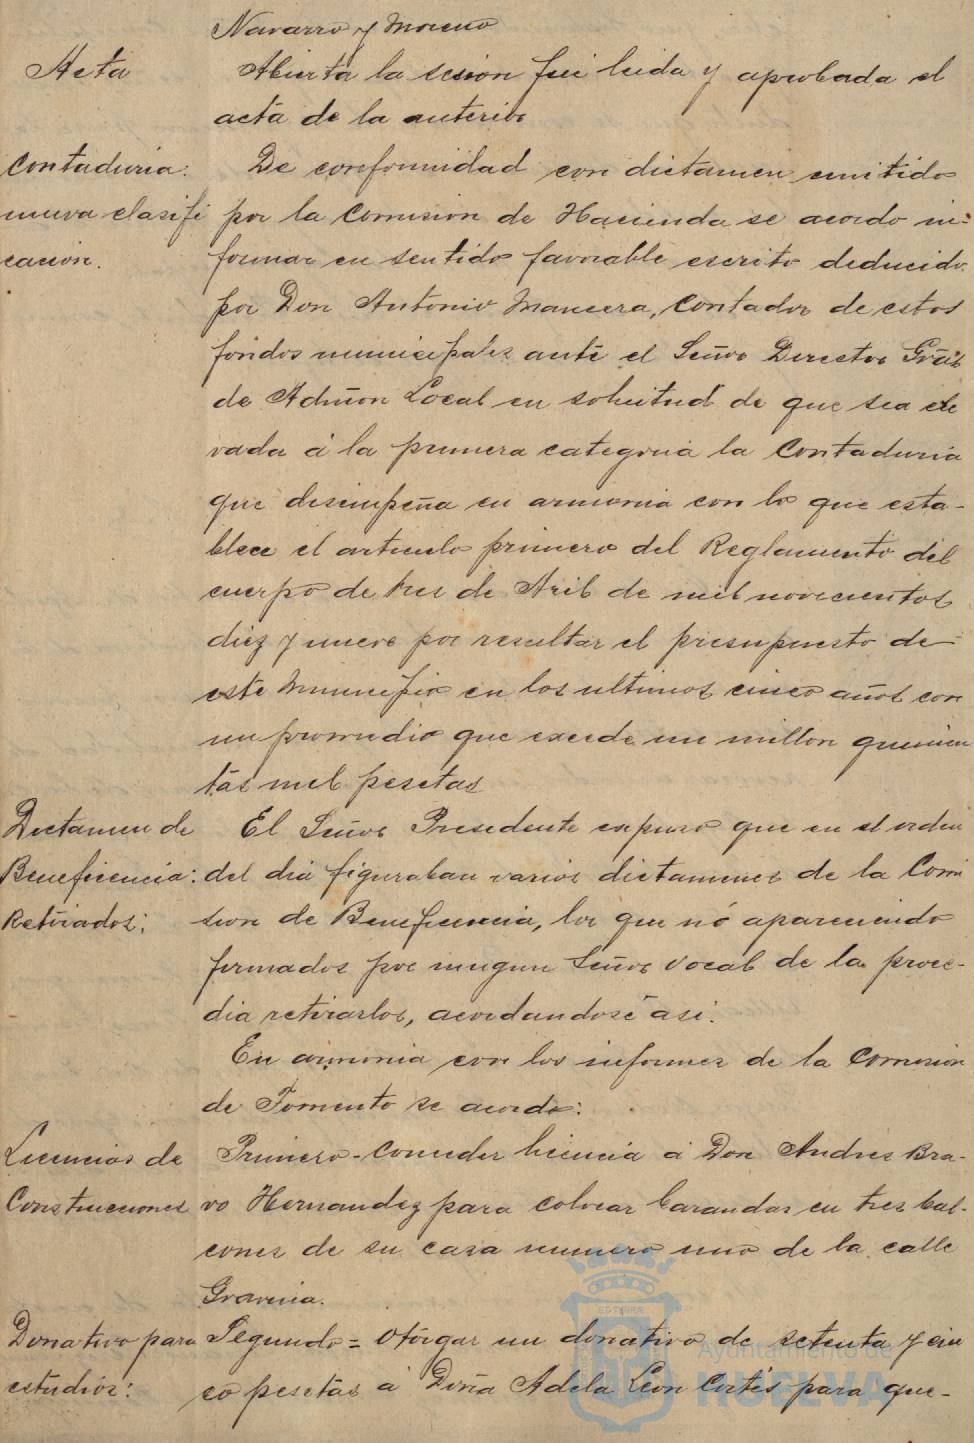 Navarro y Moreno
Acta
Abierta la sesión fué leida y aprobada el
acta de la anterior
Contaduria:
nueva clasifi
cación.
De conformidad con dictamen emitido
por la Comision de Hacienda se acordo in-
formar en sentido favorable escrito deducido
por Don Antonio Mancera, Contador de estos
fondos municipales ante el Señor Director Gral
de Admon Local en solicitud de que sea ele
vada á la primera categoria la Contaduria
que desempeña en armonia con lo que esta-
blece el articulo primero del Reglamento del
cuerpo de tres de Aril de mil novecientos
diez y nueve por resultar el presupuesto de
este Municipio en los ultimos cinco años con
un promedio que excede un millon quinien
tas mil pesetas
Dictamen de
Beneficencia:
Retirados:
El Señor Presidente expuso que en el orden
del dia figuraban varios dictamenes de la Comi
sion de Beneficencia, los que nó apareciendo
firmados por ningun Señor Vocal de la proce-
dia retirarlos, acordandose asi.
En armonia con los informes de la Comision
de Fomento se acordo:
Licencias de
Construcciones
Primero-Conceder licencia á Don Andres Bra-
vo Hernandez para colocar barandas en tres bal-
cones de su casa numero uno de la calle
Gravina.
Donativo para
estudios:
Segundo= Otorgar un donativo de setenta y cin
co pesetas á Doña Adela León Cortés para que-
Ayuntamiento de
HUELVA